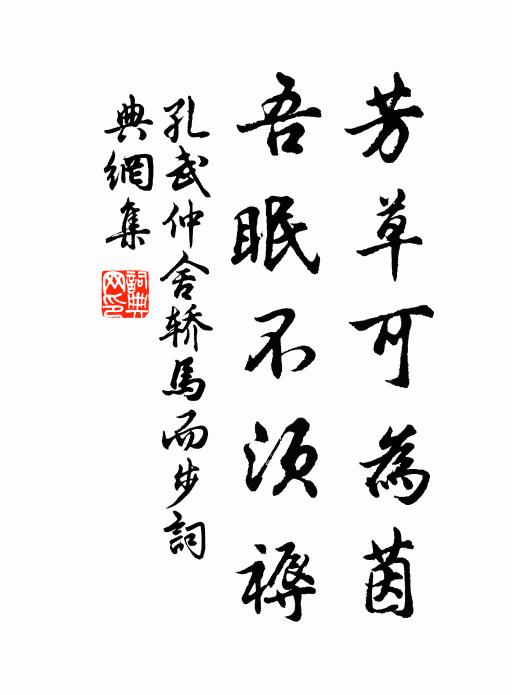 芳草可為茵
吾眠不須褥
孔武仲舍轿馬而步詞
典網集
詞典網印